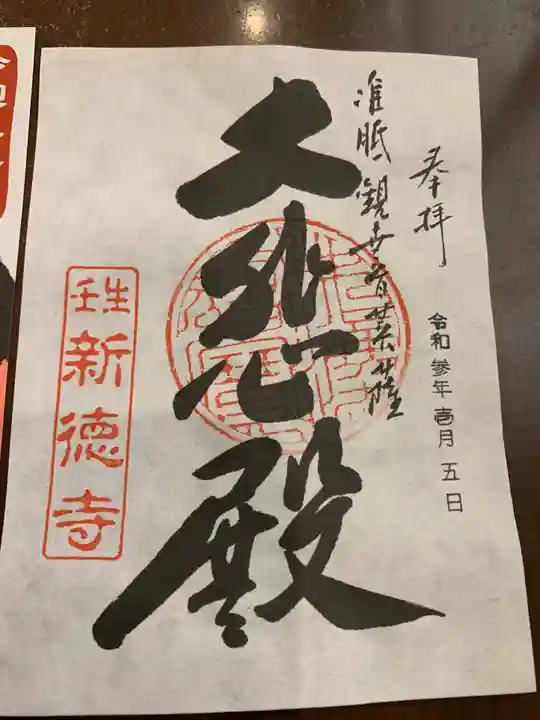 奉拝
令和参年壱月五日
准胝観世音菩薩
大悲殿
壬生
新徳寺